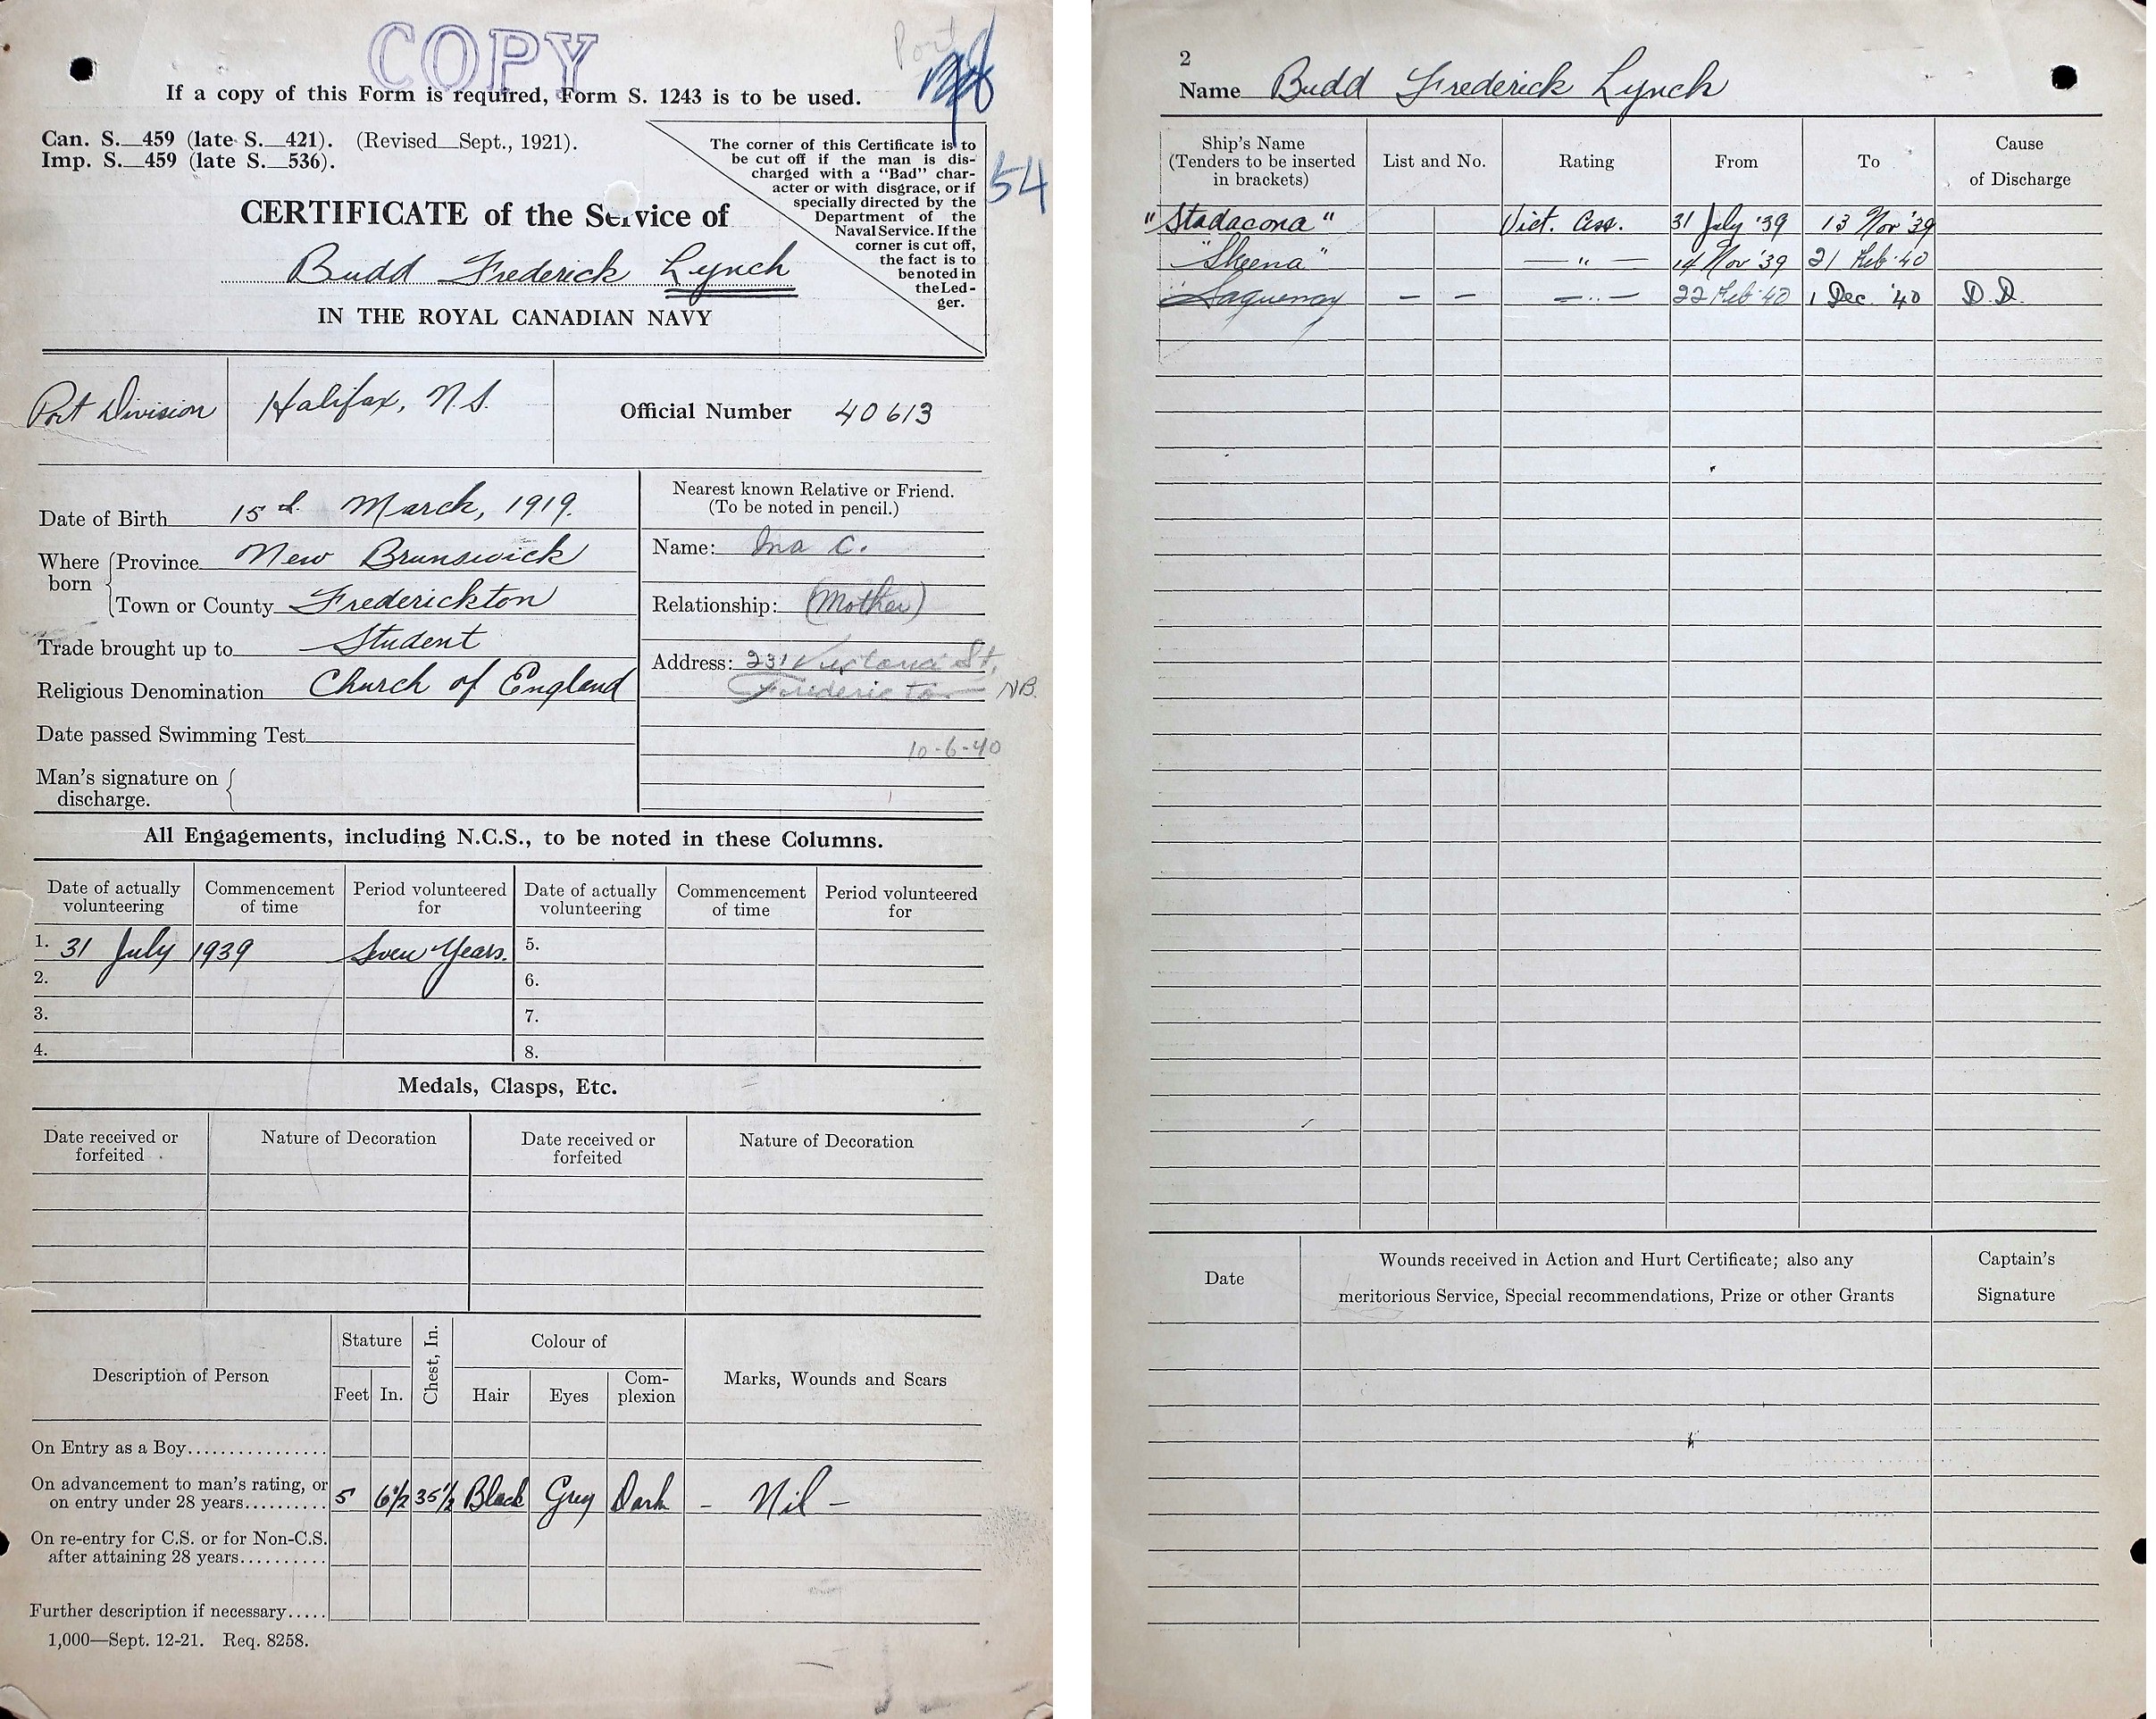 COPY
Port
If a copy of this Form is required, Form S. 1243 is to be used.
Can. S.—459 (late S.—421). (Revised—Sept., 1921).
Imp. S.—459 (late S.—536).
The corner of this Certificate is to
be cut off if the man is dis-
charged with a "Bad" char-
acter or with disgrace, or if
specially directed by the
Department of the
Naval Service. If the
corner is cut off,
the fact is to
be noted in
the Led-
ger.
54
CERTIFICATE of the Service of
Budd Frederick Lynch
IN THE ROYAL CANADIAN NAVY
Port Division
Halifax, N.S.
Official Number 40613
Date of Birth 15th March, 1919.
Where born
Province New Brunswick
Town or County Frederickton
Trade brought up to Student
Religious Denomination Church of England
Date passed Swimming Test
Man's signature on
discharge.
Nearest known Relative or Friend.
(To be noted in pencil.)
Name: Ina C.
Relationship: (Mother)
Address: 231 Victoria St,
Fredericton N.B.
10-6-40
All Engagements, including N.C.S., to be noted in these Columns.
Date of actually volunteering Commencement of time Period volunteered for Date of actually volunteering Commencement of time Period volunteered for
1. 31 July 1939 Seven Years. 5.
2. 6.
3. 7.
4. 8.
Medals, Clasps, Etc.
Date received or forfeited Nature of Decoration Date received or forfeited Nature of Decoration
Description of Person
Stature
Feet In.
Chest, In.
Colour of
Hair Eyes Com-
plexion
Marks, Wounds and Scars
On Entry as a Boy................
On advancement to man's rating, or
on entry under 28 years.......... 5 6½ 35½ Black Grey Dark – Nil –
On re-entry for C.S. or for Non-C.S.
after attaining 28 years..........
Further description if necessary.....
1,000—Sept. 12-21. Req. 8258.
2
Name Budd Frederick Lynch
Ship's Name
(Tenders to be inserted
in brackets)
List and No. Rating From To
Cause
of Discharge
"Stadacona" Vict. Ass. 31 July '39 13 Nov '39
"Skeena" — " — 14 Nov '39 21 Feb '40
Saguenay — — — " — 22 Feb '40 1 Dec. '40 D.D.
Date
Wounds received in Action and Hurt Certificate; also any
meritorious Service, Special recommendations, Prize or other Grants
Captain's
Signature